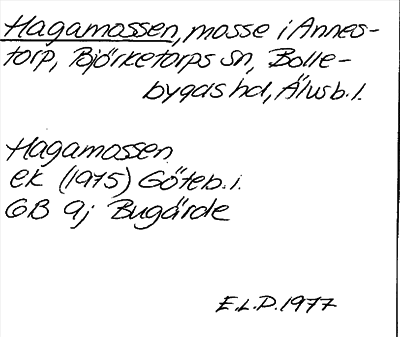 Hagamossen, mosse i Annes-
torp, Björketorps sn, Bolle-
bygds hd, Älvsb. l.
Hagamossen
ek (1975) Göteb. i.
GB 9j Bugärde
E.L.D. 1977